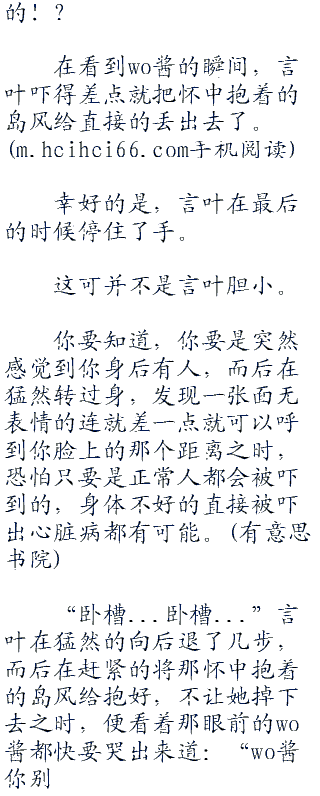 的！？
在看到wo酱的瞬间，言
叶吓得差点就把怀中抱着的
岛风给直接的丢出去了。
(m.hcihci66.com手机阅读)
幸好的是，言叶在最后
的时候停住了手。
这可并不是言叶胆小。
你要知道，你要是突然
感觉到你身后有人，而后在
猛然转过身，发现一张面无
表情的连就差一点就可以呼
到你脸上的那个距离之时，
恐怕只要是正常人都会被吓
到的，身体不好的直接被吓
出心脏病都有可能。(有意思
书院)
“卧槽...卧槽...”言
叶在猛然的向后退了几步，
而后在赶紧的将那怀中抱着
的岛风给抱好，不让她掉下
去之时，便看着那眼前的wo
酱都快要哭出来道：“wo酱
你别